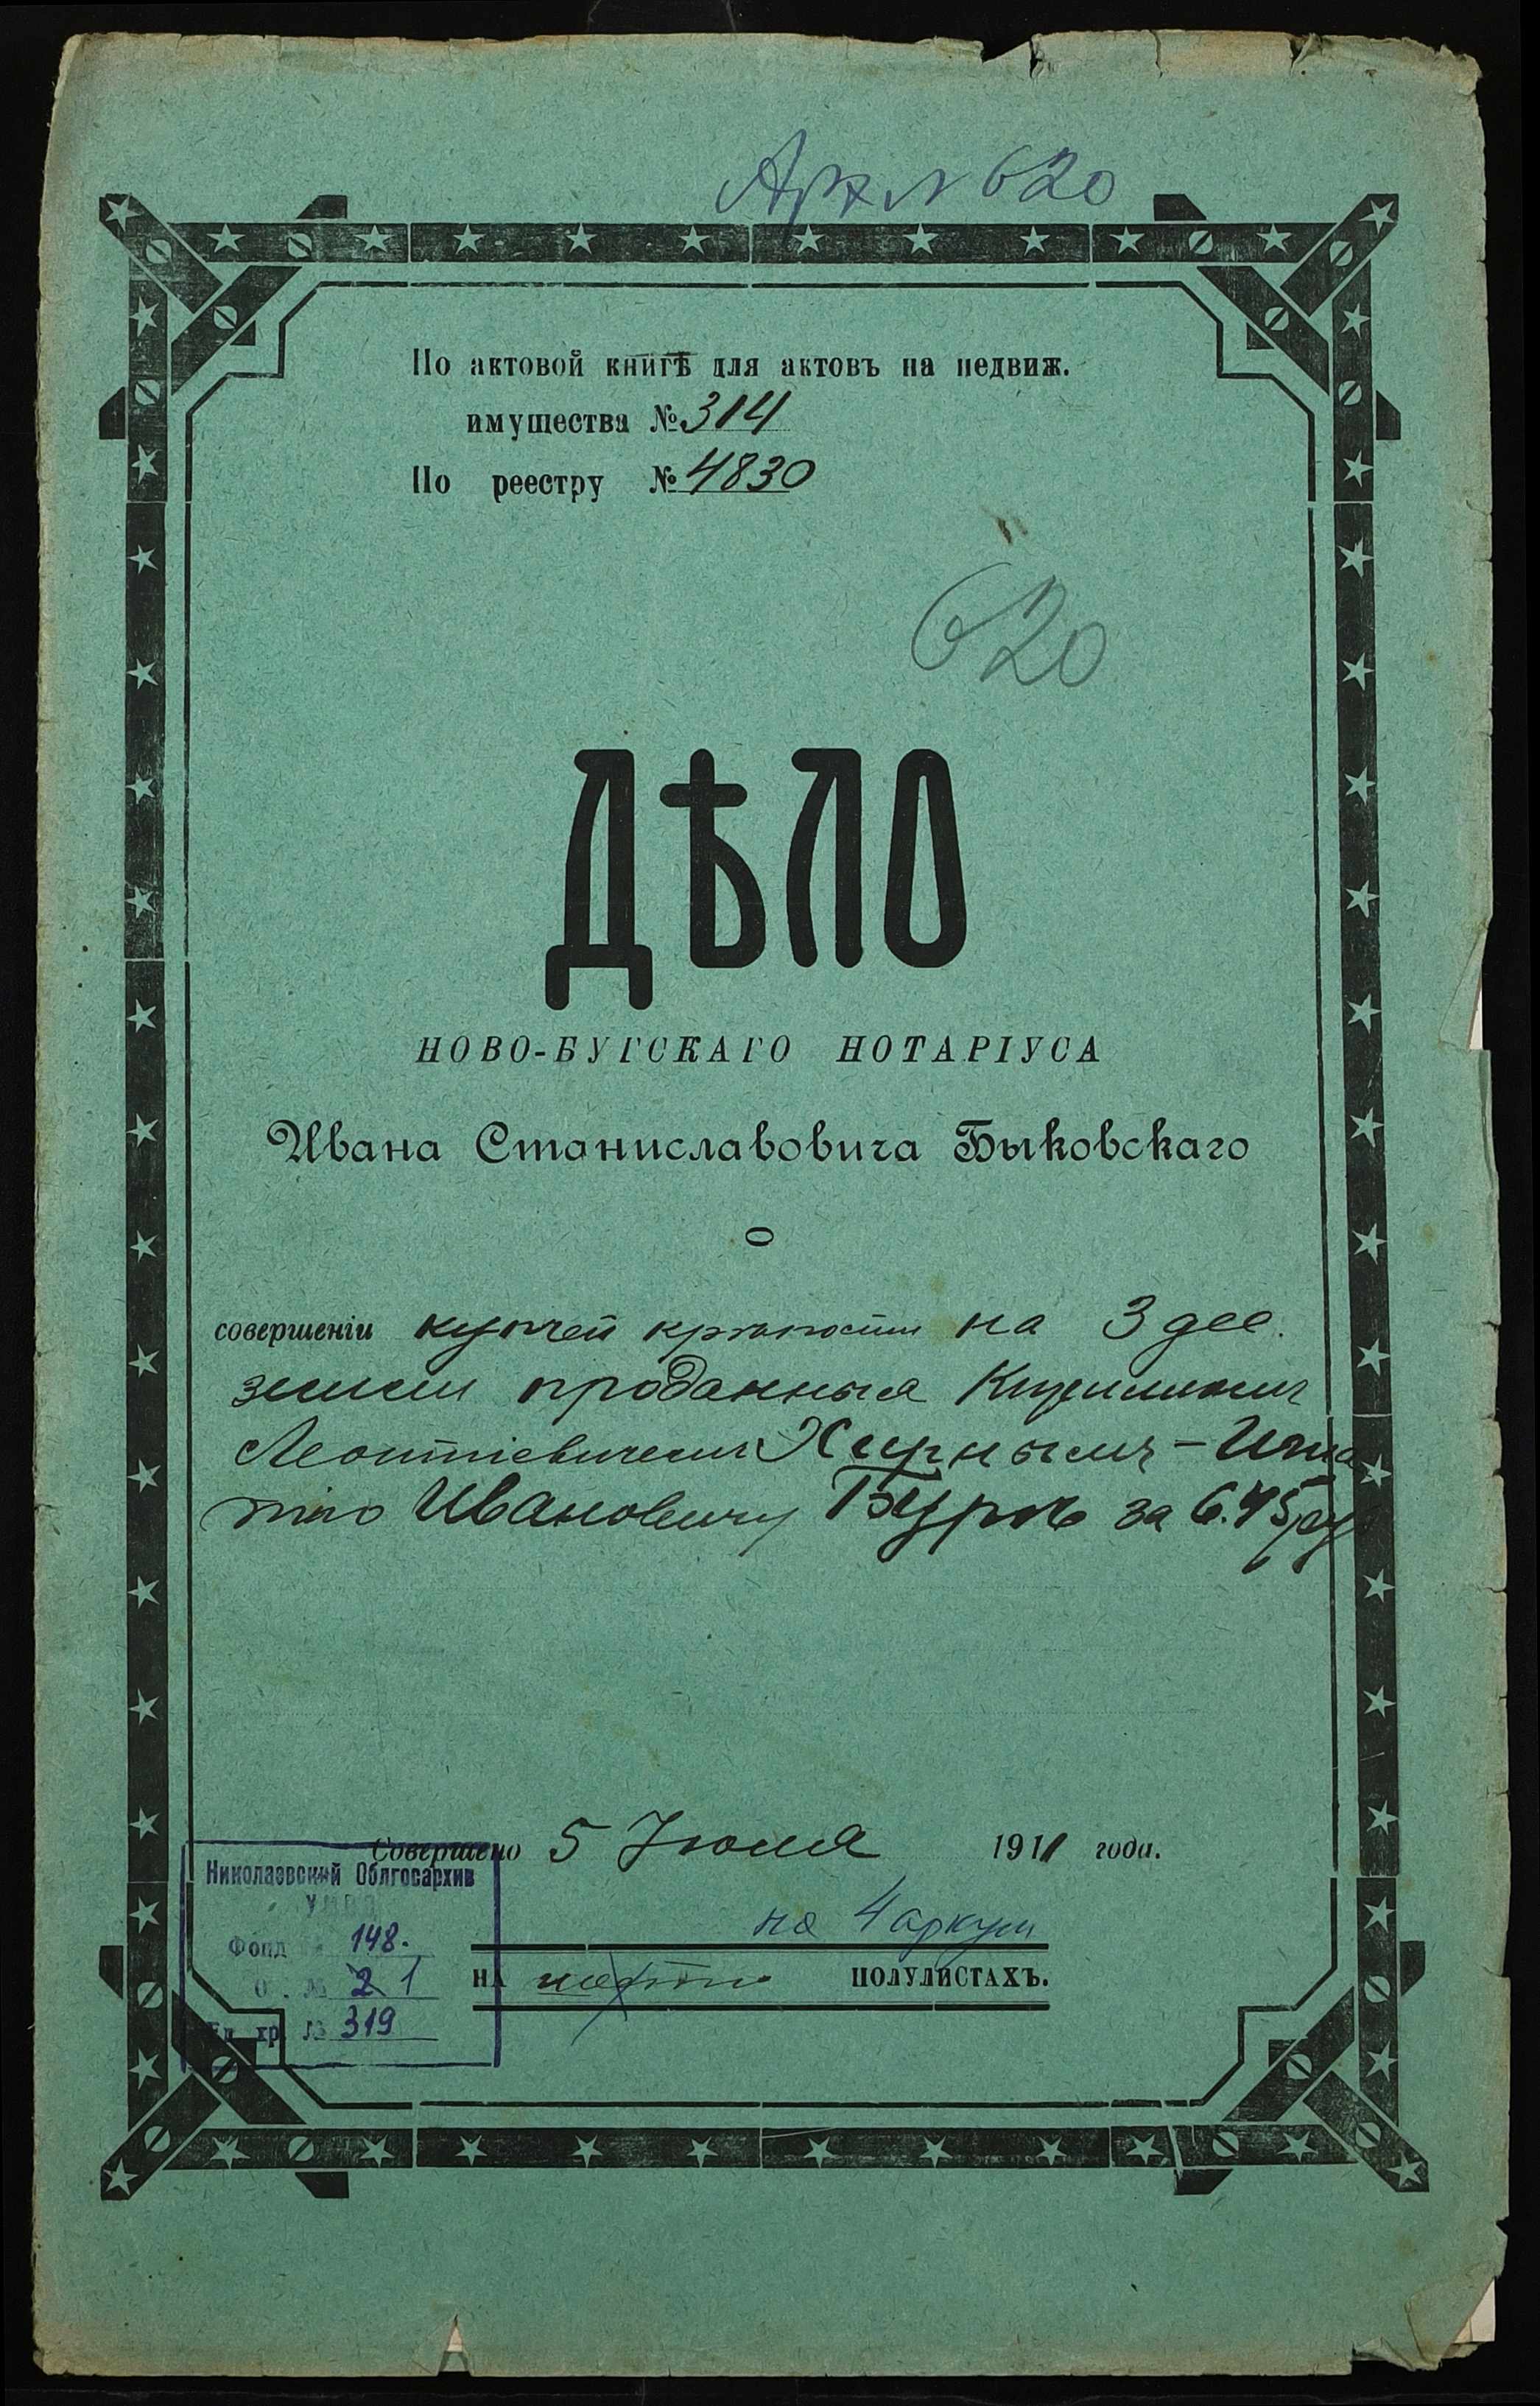 Арх № 620
По актовой книгѣ для актовъ на недвиж.
имущества № 314
По реестру № 4830
620
ДѢЛО
НОВО-БУГСКАГО НОТАРІУСА
Ивана Станиславовича Быковскаго
О
совершеніи купчей крѣпости на 3 дес.
земли проданныя Кириломъ
Леонтіевичемъ Хирнымъ - Игна
тію Ивановичу Бурѣ за 645 ру
Совершено 5 Іюля 1911 года.
Николаевский Облгосархив
УНКВД
Фонд № 148.
О . № 2 1
Ед. хр. № 319
на 4 аркуш
НА ПОЛУЛИСТАХЪ.